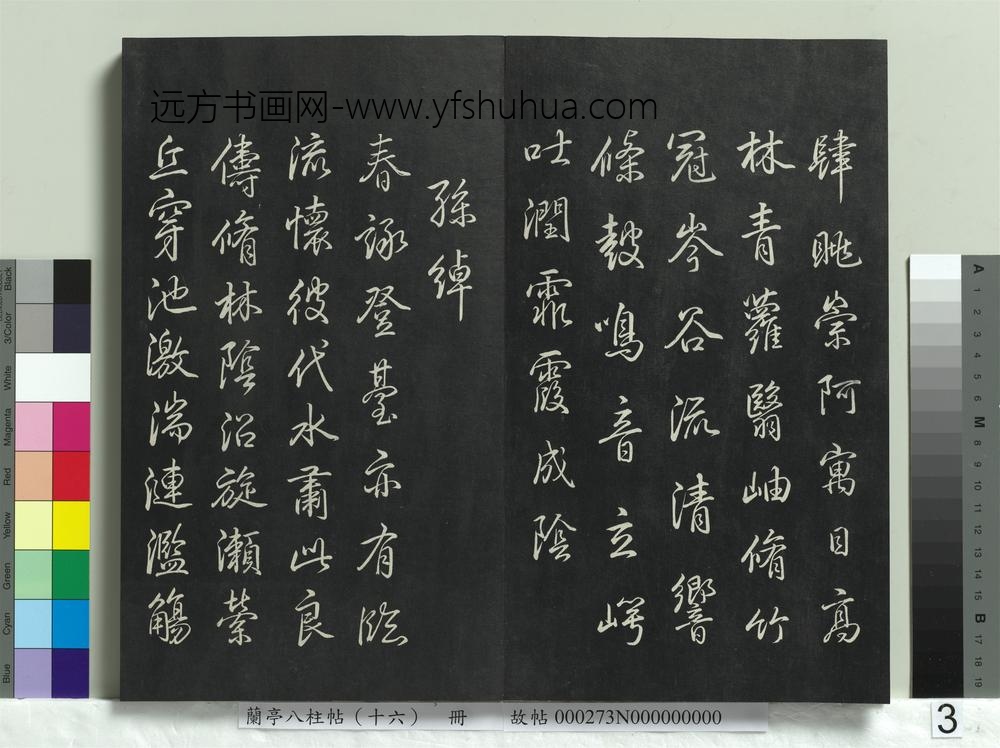 远方书画网-www.yfshuhua.com
肆眺崇阿寓目高
林青蘿翳岫脩竹
冠岑谷流清響
條鼓鳴音立崿
吐潤霏霞成陰
孫綽
春詠登臺亦有臨
流懷彼伐木肅此良
儔脩林陰沼旋瀬縈
丘穿池激湍連濫觴
蘭亭八柱帖（十六） 冊 故帖 000273N000000000
3
Blue
Cyan
Green
Yellow
Red
Magenta
White
3/Color
Black
A
1
2
3
4
5
6
M
8
9
10
11
12
13
14
15
B
17
18
19